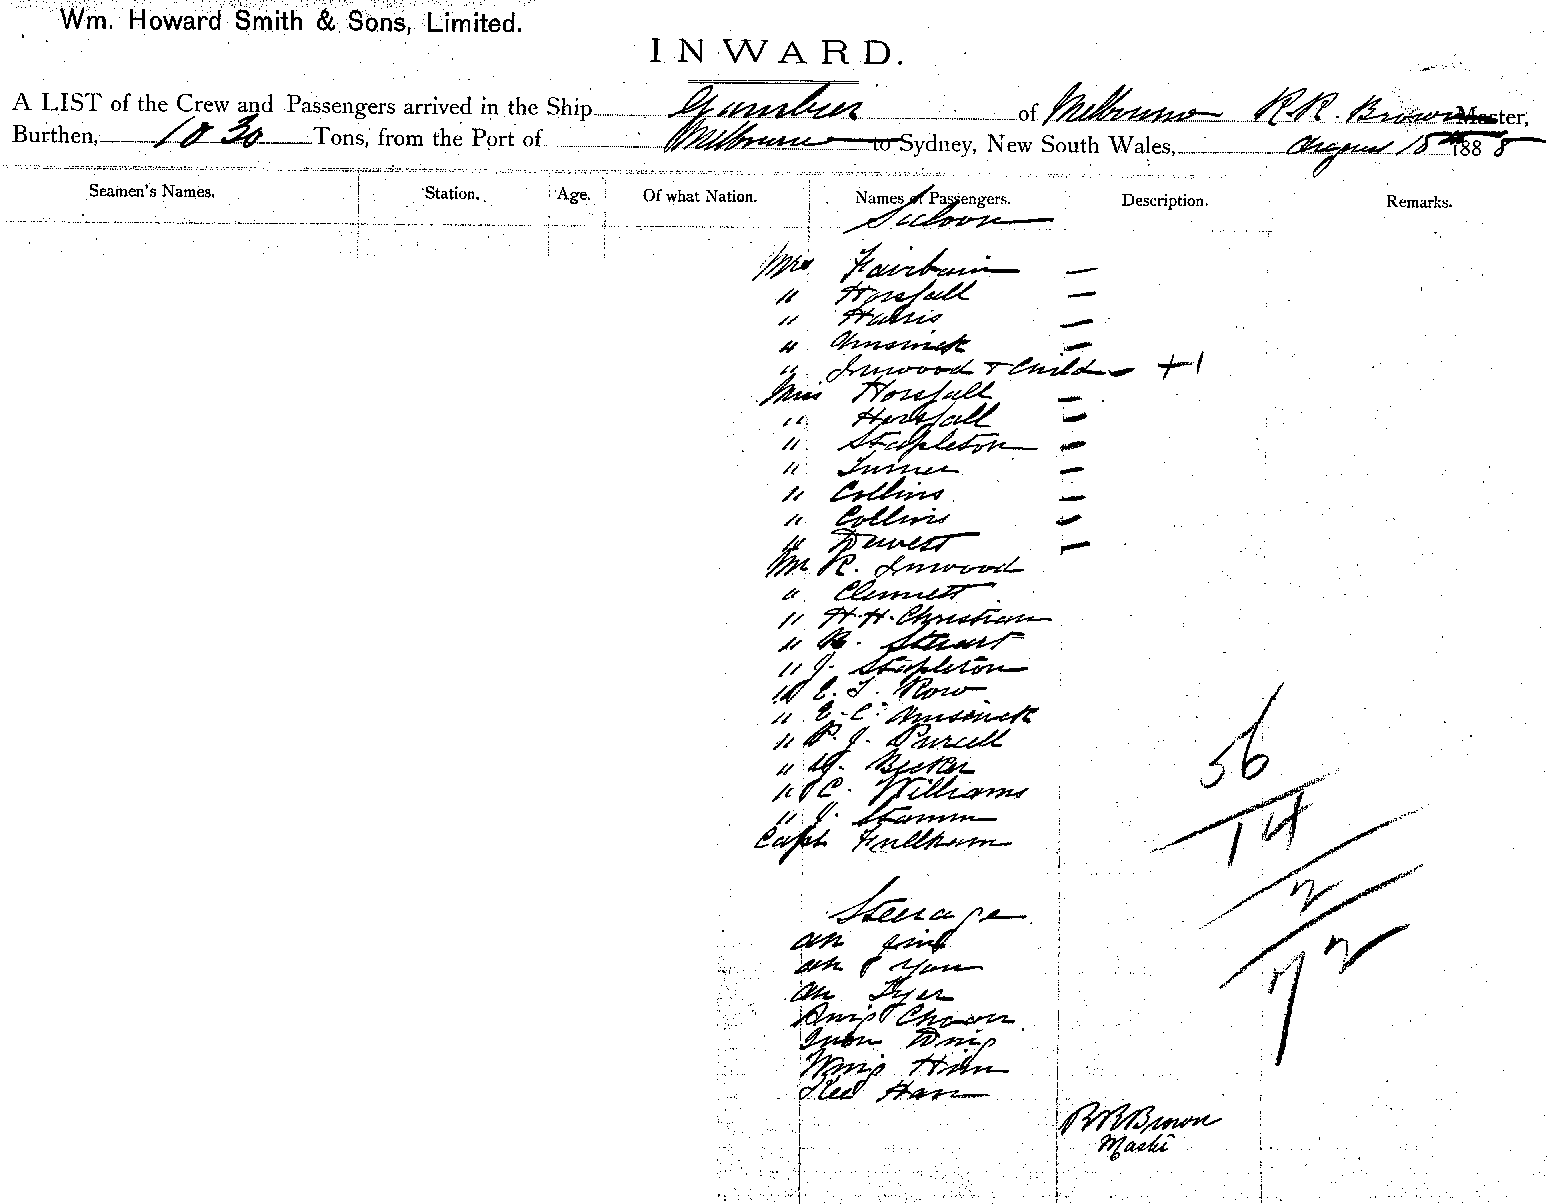 Wm. Howard Smith & Sons, Limited.
INWARD.
A LIST of the Crew and Passengers arrived in the Ship Gambier of Melbourne R.R. Brown Master,
Burthen, 1030 Tons, from the Port of Melbourne to Sydney, New South Wales, August 18th 1888
Seamen's Names. Station. Age. Of what Nation. Names of Passengers. Description. Remarks.
Saloon
Mrs Fairbairn —
" Horsfall —
" Harris —
" Amsinck —
" Inwood & Child — +1
Miss Horsfall —
" Horsfall —
" Stapleton —
" Turner —
" Collins —
" Collins —
" Dewett —
Mr R. Inwood
" Clennett
" H.H. Christian
" R. Stewart
" J. Stapleton
" E. T. Row
" E. C. Amsinck
" P. J. Purcell
" Becker
" C. Williams
" J. Stamm
Capt Fullham
56
14
2
72
Steerage
Ah
Ah You
Ah Dyer
Choon
Wing
Wing Him
Kee Han
RR Brown
Master